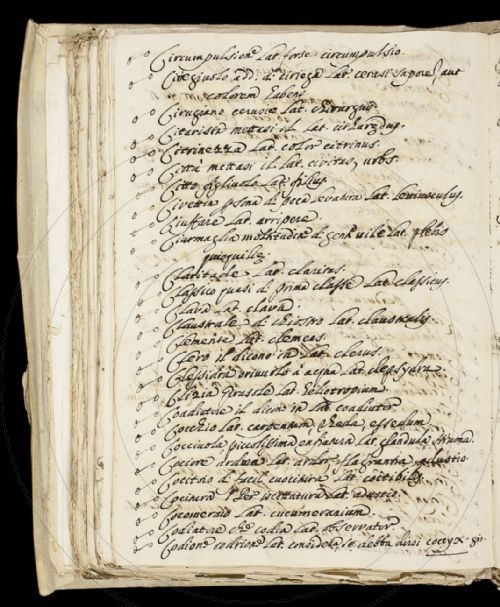 Circumpulsione lat. forse circumpulsio.
Ciregiuolo add. di ciriegia lat. cerasi sapore, aut
colorem habens
Cirugiano cerusico lat. chirurgus
Citarista mettasi il lat. citharedus.
Citrinezza lat. color citrinus.
Città mettasi il lat. civitas, urbs.
Citto figliuolo lat. filius.
Civettin psona di poca levatura lat. leviusculus.
Ciuffare lat. arripere
Ciurmaglia moltitudine di gente vile lat. plebis
quisquilie.
Claritade lat. claritas.
Classico quasi di prima classe lat. classicus.
Clava lat. clava.
Claustrale di chiostro lat. claustralis
Clemente lat. clemens.
Clero il dicono in lat. clerus.
Clessidra oriuolo a acqua lat. clepsydra
Clizia girasole lat. heliotropium.
Coadiutore il dicono in lat. coadiutor
Cocchio lat. carpentum rheda, essedum
Cocciuola piccolissima enfiatura lat. glandula struma.
Cociore lat. ardor, flagrantia, adustio.
Cocitoio di facil cuocitura lat. coctibilis.
Cocitura lat. adustio.
Cocomeraio lat. cucumerarium.
Codiatore che codia lat. observator.
Codione codrione lat. considera se debba dirsi coccyx